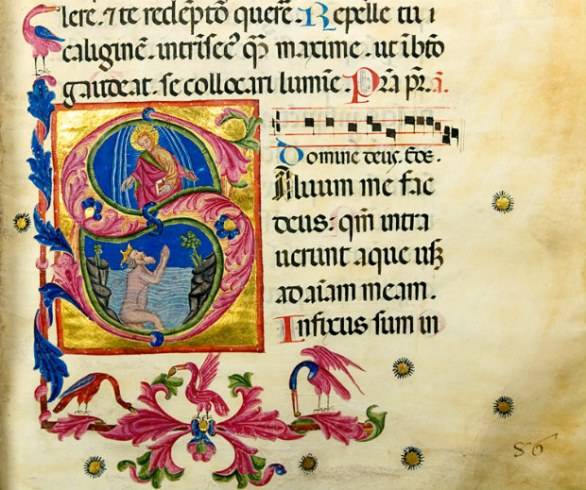 lere. ⁊ te redẽpto querẽ. Repelle tu i
caliginẽ. intrĩsecꝰ q̃ maxime. ut ĩbto
gaudeat. se collocari lumĩe. Pra pr̃.
Domine deus.
SAluum me fac
deus: qm̃ intra
uerunt aque usqꝫ
ad aĩam meam.
Infixus sum in
56